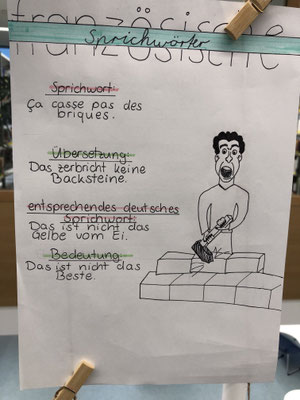 französische
Sprichwörter
französische
Sprichwort:
Ça casse pas des
briques.
Übersetzung:
Das zerbricht keine
Backsteine.
entsprechendes deutsches
Sprichwort:
Das ist nicht das
Gelbe vom Ei.
Bedeutung
Das ist nicht das
Beste.